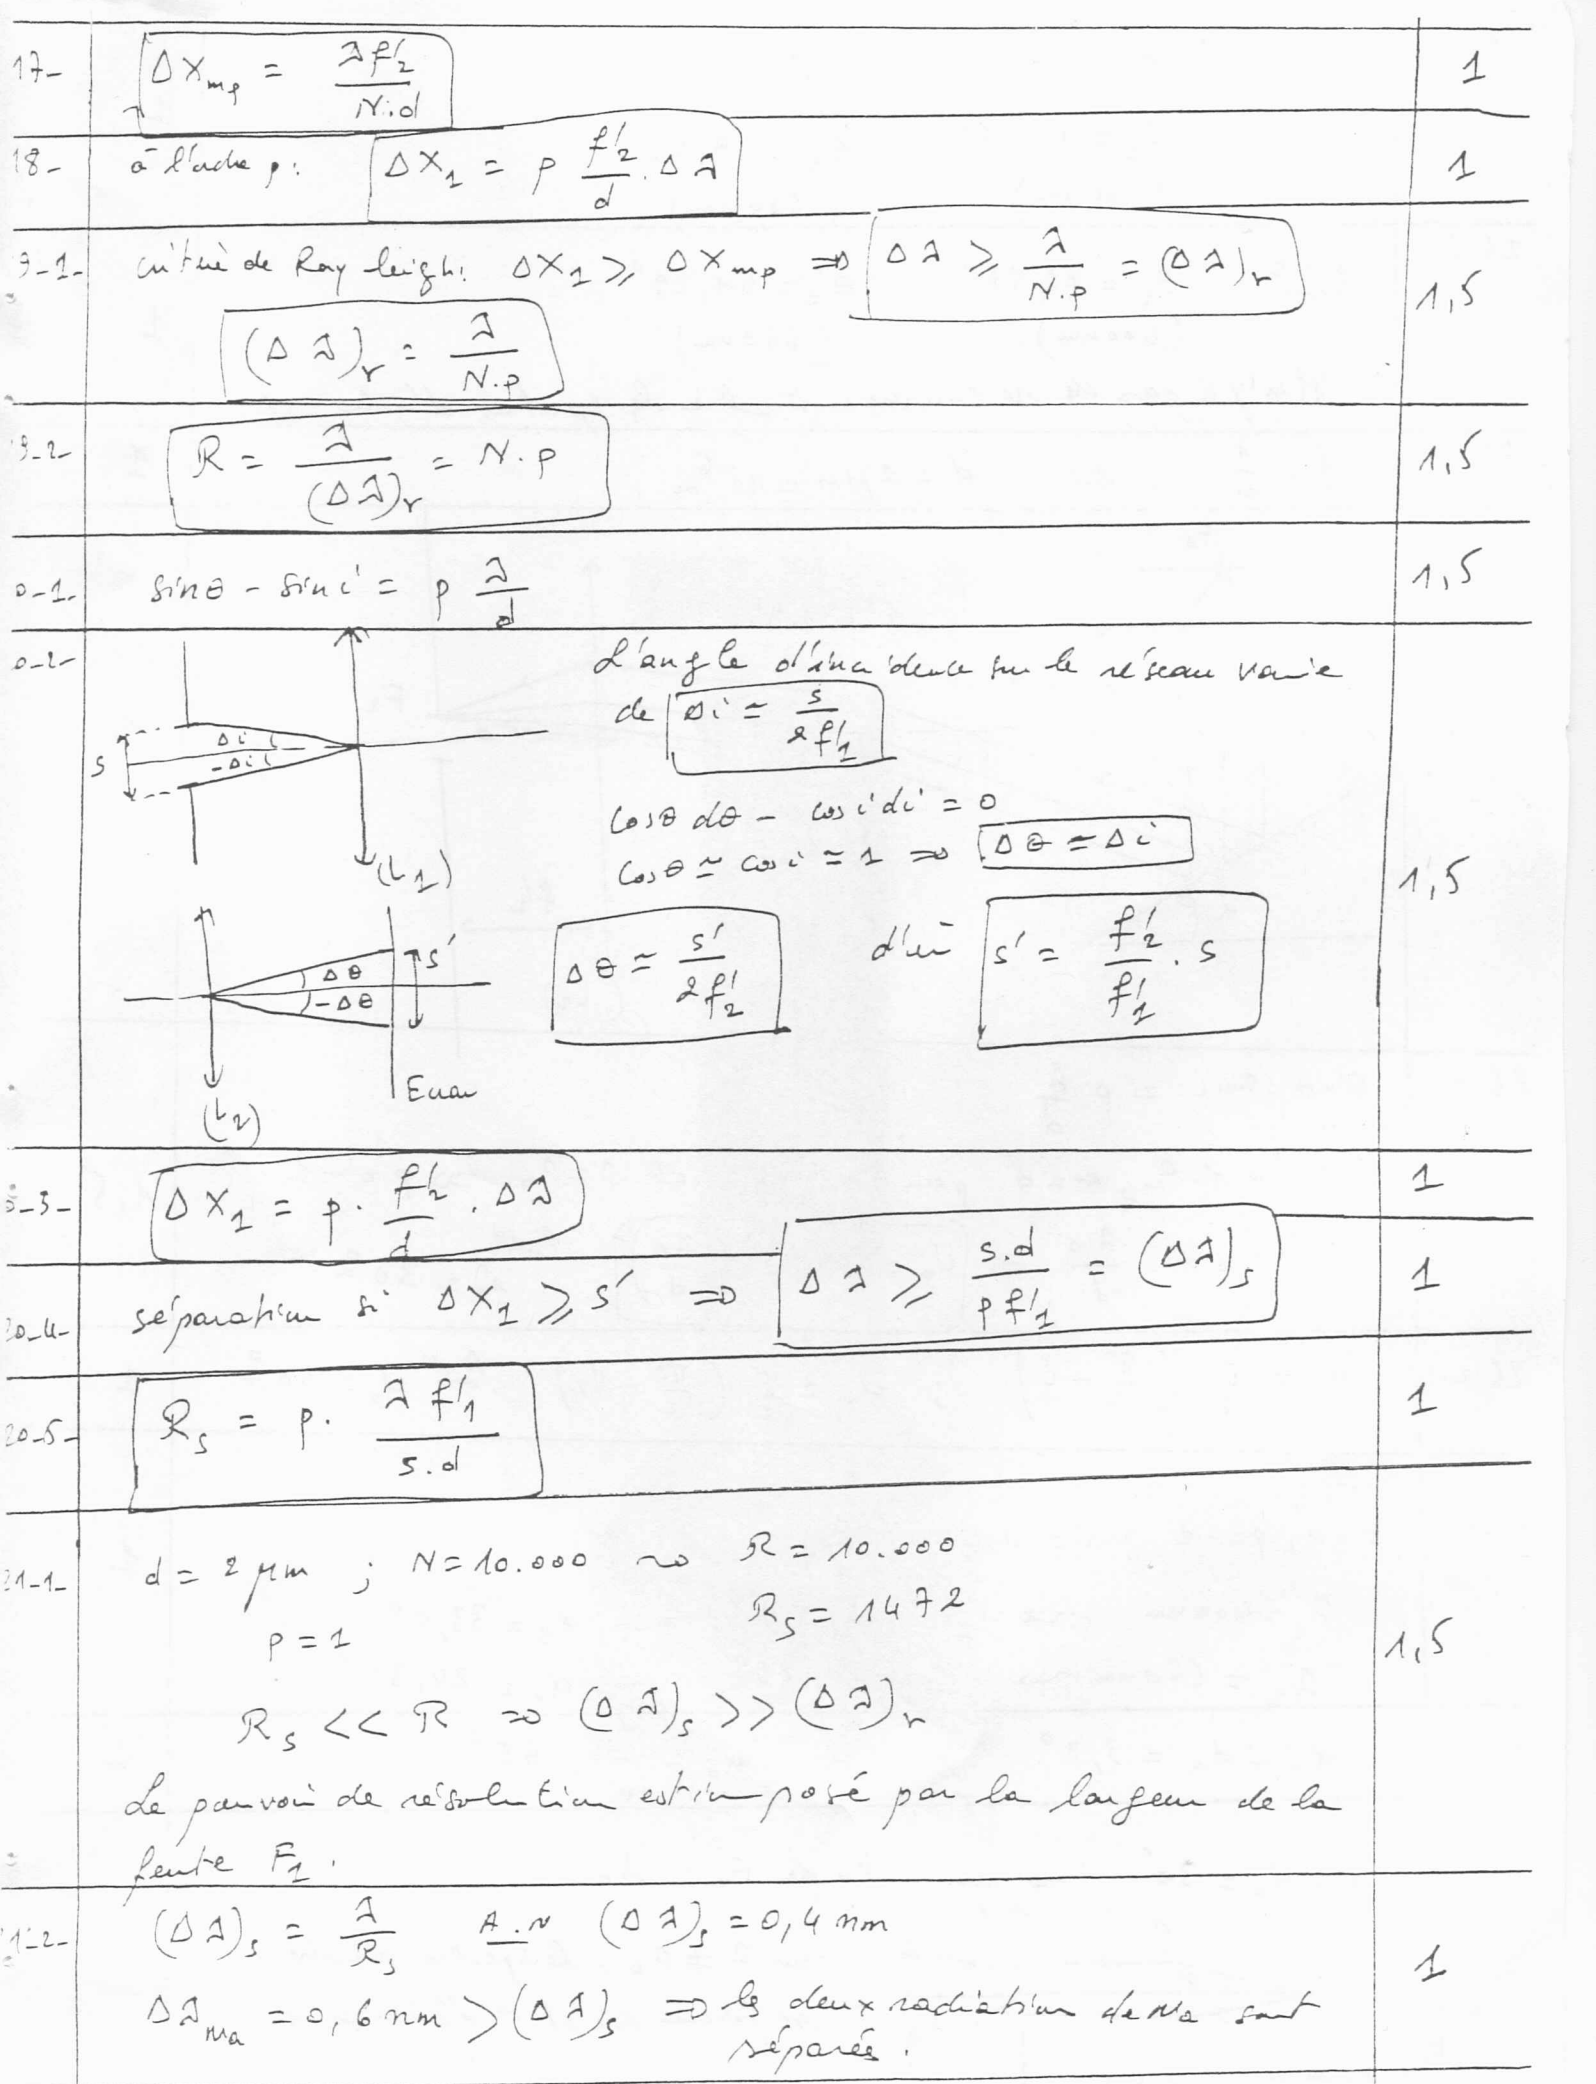 17- ΔX_mp = λf'₂ / N.d 1
18- à l'ordre p : ΔX₁ = p f'₂/d . Δλ 1
9-1- critère de Rayleigh : ΔX₁ ≥ ΔX_mp ⇒ Δλ ≥ λ/N.p = (Δλ)_r 1,5
(Δλ)_r = λ/N.p
9-2- R = λ/(Δλ)_r = N.p 1,5
0-1- sinθ - sin i = p λ/d 1,5
0-2- L'angle d'incidence sur le réseau varie
de Δi ≃ s/2f'₁
s Δi -Δi (L₁)
cosθ dθ - cos i di = 0
cosθ ≃ cos i ≃ 1 ⇒ Δθ ≃ Δi
1,5
Δθ -Δθ s' (L₂) Ecran
Δθ ≃ s'/2f'₂ d'où s' = f'₂/f'₁ . s
0-3- ΔX₁ = p . f'₂/d . Δλ 1
20-4- séparation si ΔX₁ ≥ s' ⇒ Δλ ≥ s.d/p f'₁ = (Δλ)_s 1
20-5- R_s = p . λ f'₁ / s.d 1
21-1- d = 2 μm ; N = 10.000 ⇝ R = 10.000
p = 1 R_s = 1472
1,5
R_s << R ⇒ (Δλ)_s >> (Δλ)_r
Le pouvoir de résolution est imposé par la largeur de la
fente F₁.
1-2- (Δλ)_s = λ/R_s A.N (Δλ)_s = 0,4 nm
1
Δλ_Na = 0,6 nm > (Δλ)_s ⇒ les deux radiation de Na sont
séparées.